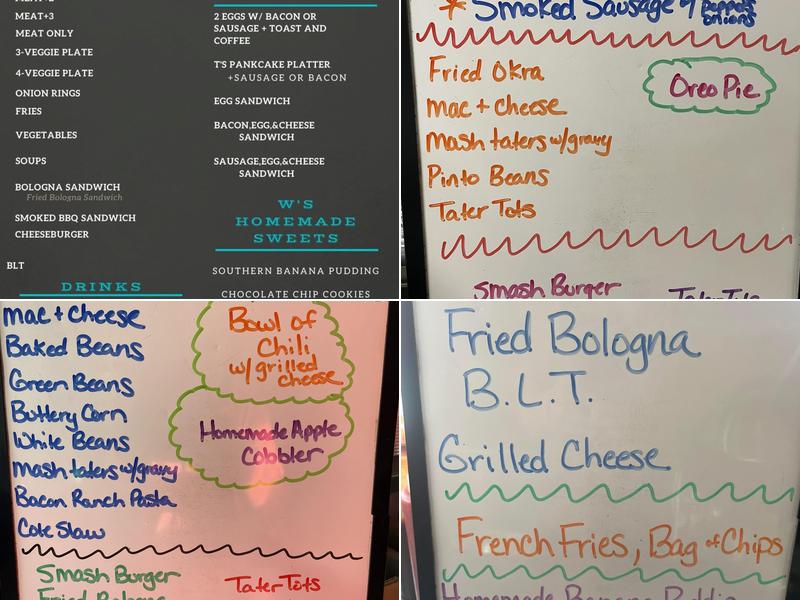 MEAT+3
MEAT ONLY
3-VEGGIE PLATE
4-VEGGIE PLATE
ONION RINGS
FRIES
VEGETABLES
SOUPS
BOLOGNA SANDWICH
Fried Bologna Sandwich
SMOKED BBQ SANDWICH
CHEESEBURGER
BLT
DRINKS
2 EGGS W/ BACON OR
SAUSAGE + TOAST AND
COFFEE
T'S PANKCAKE PLATTER
+SAUSAGE OR BACON
EGG SANDWICH
BACON,EGG,&CHEESE
SANDWICH
SAUSAGE,EGG,&CHEESE
SANDWICH
W'S
HOMEMADE
SWEETS
SOUTHERN BANANA PUDDING
CHOCOLATE CHIP COOKIES
* Smoked Sausage w/ peppers
onions
Fried Okra
Mac + Cheese
Mash taters w/gravy
Pinto Beans
Tater Tots
Oreo Pie
Smash Burger
Tater Tots
Mac + Cheese
Baked Beans
Green Beans
Buttery Corn
White Beans
Mash taters w/gravy
Bacon Ranch Pasta
Cole Slaw
Bowl of
Chili
w/grilled
cheese
Homemade Apple
Cobbler
Smash Burger
Fried Bologna
Tater Tots
Fried Bologna
B.L.T.
Grilled Cheese
French Fries, Bag of Chips
Homemade Banana